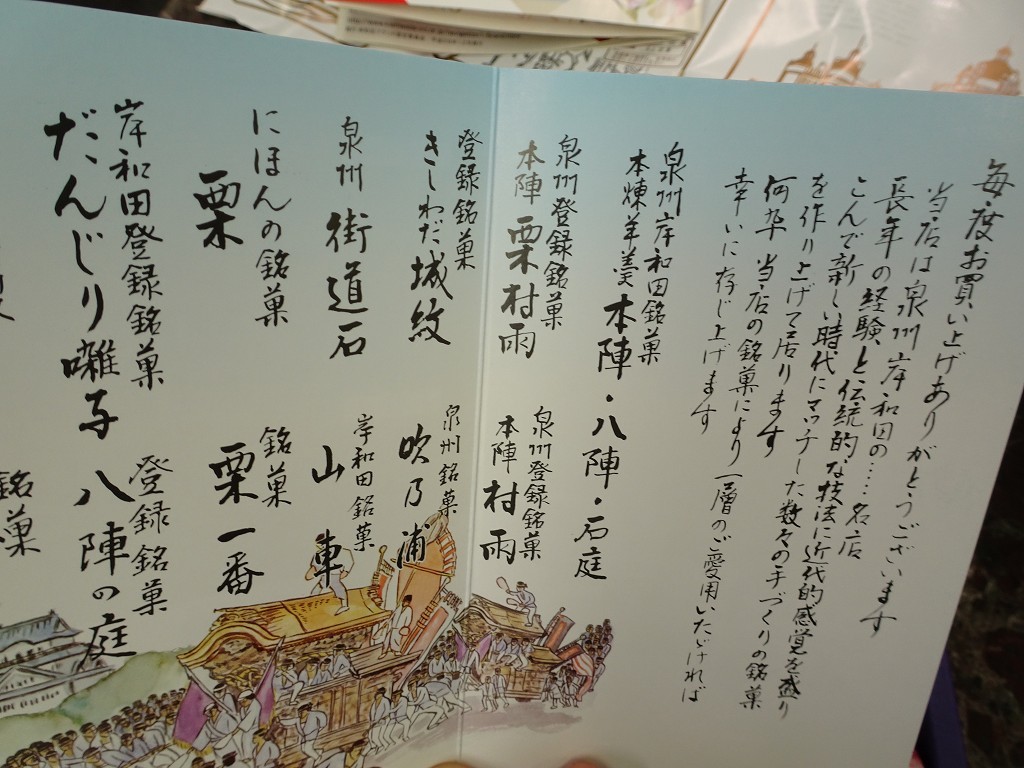 毎度お買い上げありがとうございます
当店は泉州岸和田の……名店
長年の経験と伝統的な技法に近代的感覚を盛り
こんで新しい時代にマッチした数々の手づくりの銘菓
を作り上げて居ります
何卒 当店の銘菓により一層のご愛用いたゞければ
幸いに存じ上げます
泉州岸和田銘菓
本煉羊羹 本陣・八陣・石庭
泉州登録銘菓
本陣 栗村雨
泉州登録銘菓
本陣 村雨
登録銘菓
きしわだ城紋
泉州銘菓
吹乃浦
泉州 街道石
岸和田銘菓
山車
にほんの銘菓
栗
銘菓
栗一番
岸和田登録銘菓
だんじり囃子
登録銘菓
八陣の庭
銘菓